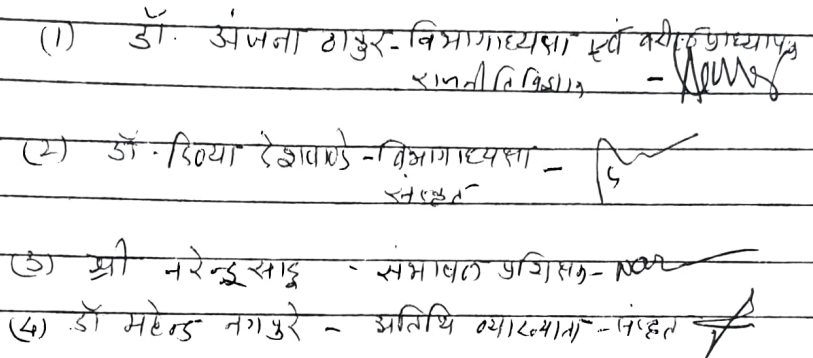 (1) डॉ. अंजना ठाकुर - विभागाध्यक्षा एवं वरिष्ठ प्राध्यापक
राजनीति विज्ञान -
(2) डॉ. दिव्या देशपाण्डे - विभागाध्यक्षा -
संस्कृत
(3) श्री नरेन्द्र साहू - संभाषण प्रशिक्षक -
(4) डॉ महेन्द्र नगपुरे - अतिथि व्याख्याता - संस्कृत